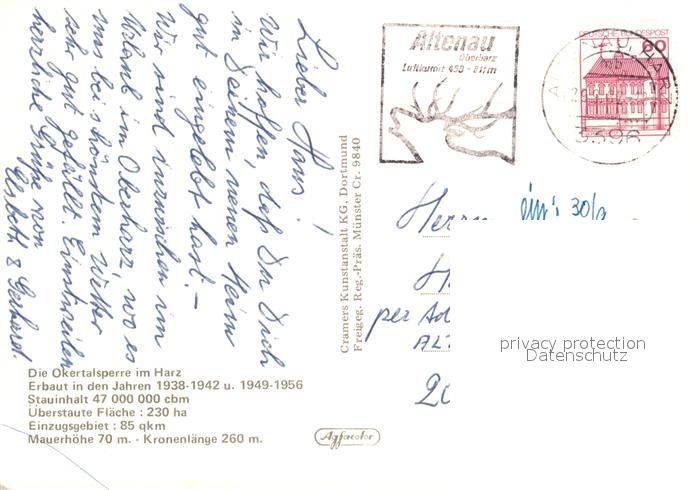 Lieber Hans!
Wir hoffen, daß Du Dich
in Deinem neuen Heim
gut eingelebt hast. –
Wir sind inzwischen im
Urlaub im Oberharz, wo es
uns bei schönstem Wetter
sehr gut gefällt. Einstweilen
herzliche Grüße von
Elsbeth & Gerhard.
Die Okertalsperre im Harz
Erbaut in den Jahren 1938-1942 u. 1949-1956
Stauinhalt 47 000 000 cbm
Überstaute Fläche : 230 ha
Einzugsgebiet : 85 qkm
Mauerhöhe 70 m. - Kronenlänge 260 m.
Cramers Kunstanstalt KG, Dortmund
Freigeg. Reg.-Präs. Münster Cr. 9840
Agfacolor
Altenau
Oberharz
Luftkurort 450 - 811m
DEUTSCHE BUNDESPOST
60
ALTENAU, HARZ
3396
Herrn
H
per Ad
ALT
20
privacy protection
Datenschutz